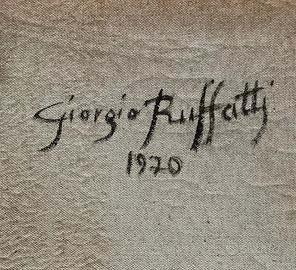 Giorgio Ruffatti
1970